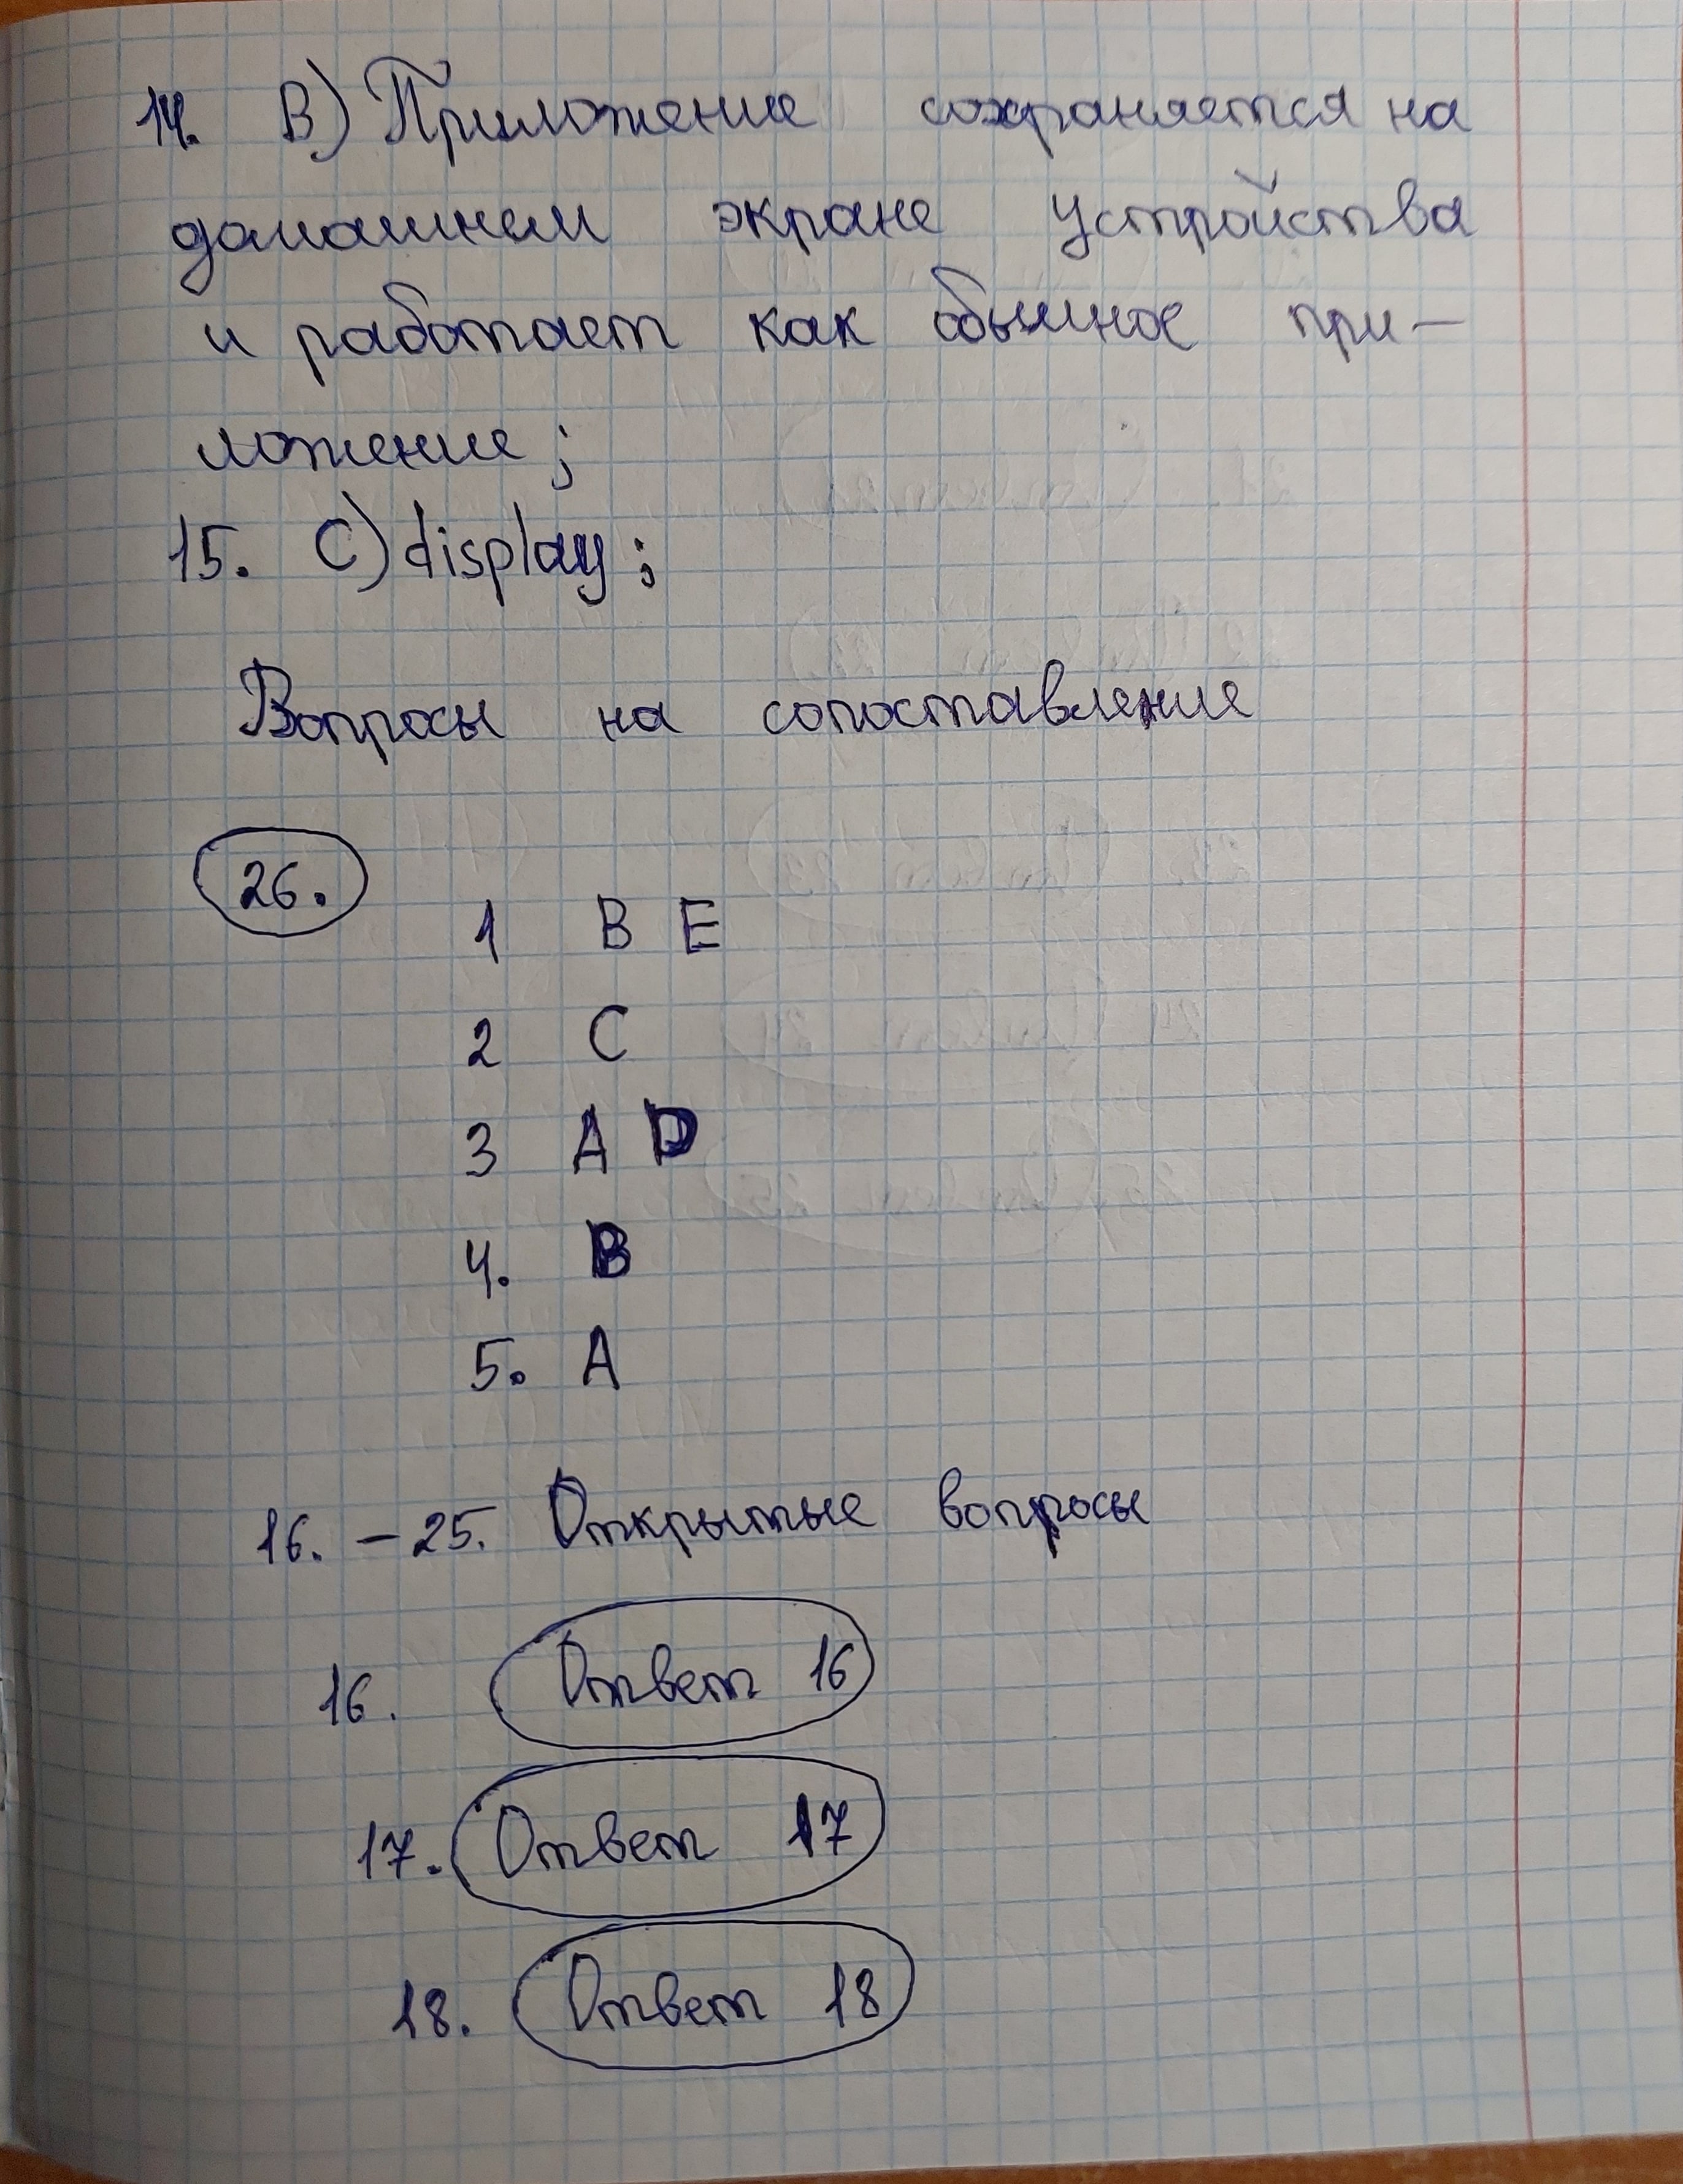 14. B) Приложение сохраняется на
домашнем экране устройства
и работает как обычное при-
ложение;
15. C) display;
Вопросы на сопоставление
26.
1 B E
2 C
3 A D
4. B
5. A
16. - 25. Открытые вопросы
16. Ответ 16
17. Ответ 17
18. Ответ 18